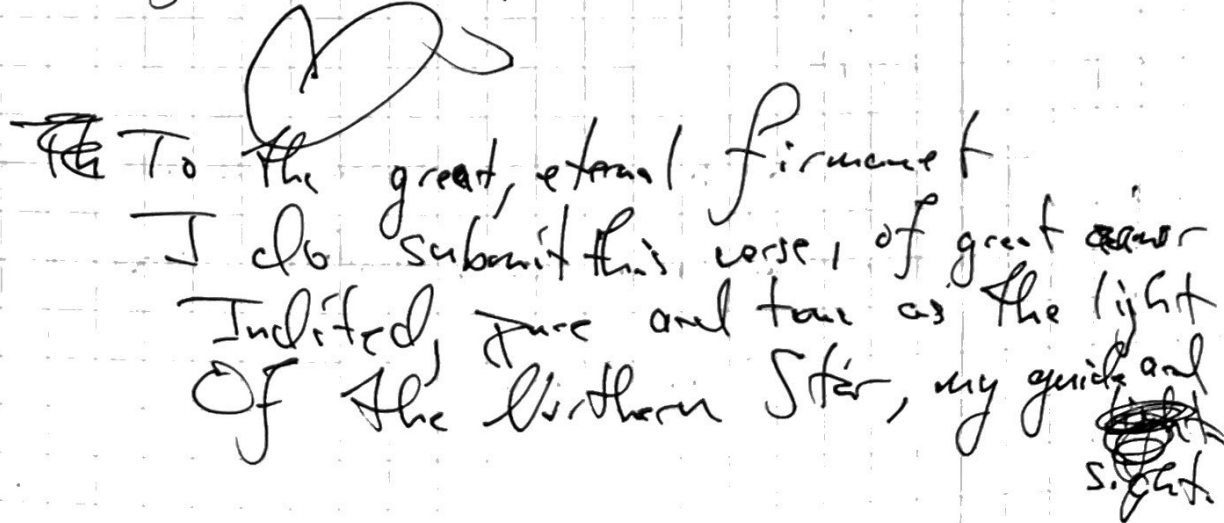 To the great, eternal firmamet
I do submit this verse, of great
Indited, pure and true as the light
Of the Northern Star, my guide and
sight.